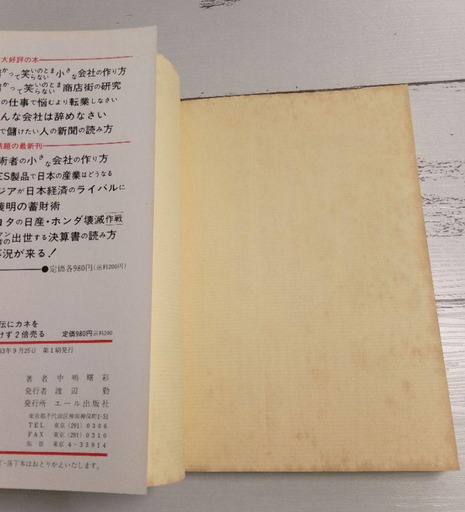 大好評の本
かって笑いのとまらない小さな会社の作り方
かって笑いのとまらない商店街の研究
の仕事で悩むより転業しなさい
んな会社は辞めなさい
で儲けたい人の新聞の読み方
話題の最新刊
術者の小さな会社の作り方
ES製品で日本の産業はどうなる
ジアが日本経済のライバルに
義明の蓄財術
ヨタの日産・ホンダ壊滅作戦
の出世する決算書の読み方
況が来る!
●定価各980円(送料200円)
伝にカネを
けず2倍売る 定価980円送料200
63年9月25日 第1刷発行
著者 中明曙彩
発行者 渡辺勤
発行所 エール出版社
東京都千代田区神田神保町1-51
TEL 東京(291)0306
FAX 東京(291)0310
振替 東京4-33914
丁・落丁本はおとりかえいたします。